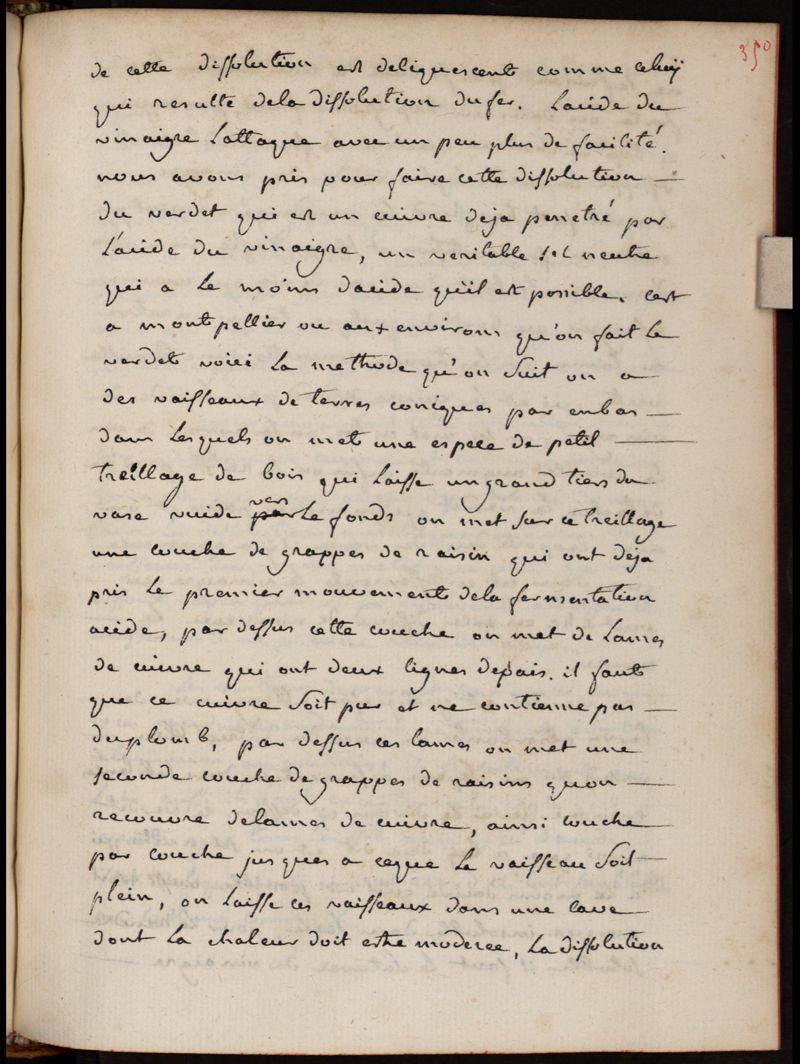 350
de cette dissolution est deliquescents comme celuÿ
qui resulte dela dissolution du fer. Lacide du
vinaigre Lattaque avec un peu plus de facilité.
nous avons pris pour faire cette dissolution —
du verdet qui est un cuivre deja penetré par
L'acide du vinaigre, un veritable sel neutre
qui a Le moins dacide qu'il est possible. cest
a montpellier ou aux environs qu'on fait Le
verdets voici La methode qu'on Suit on a
des vaisseaux de terres coniques par enbas —
dans Lesquels on mets une espece de petit —
treillage de bois qui Laisse un grand tiers du
vase vuide par vers Le fonds on met sur ce treillage
une couche de grappes de raisin qui ont deja
pris Le premier mouvements dela fermentation
acide, par dessus cette couche on met de Lames
de cuivre qui ont deux lignes depais. il fauts
que ce cuivre soit pur et ne contienne pas —
du plomb, par dessus ces lames on met une
seconde couche de grappes de raisins quon —
recouvre delames de cuivre, ainsi couche
par couche jusques a ceque Le vaisseau soit
plein, on Laisse ces vaisseaux dans une cave
dont La chaleur doit estre moderee, La dissolution